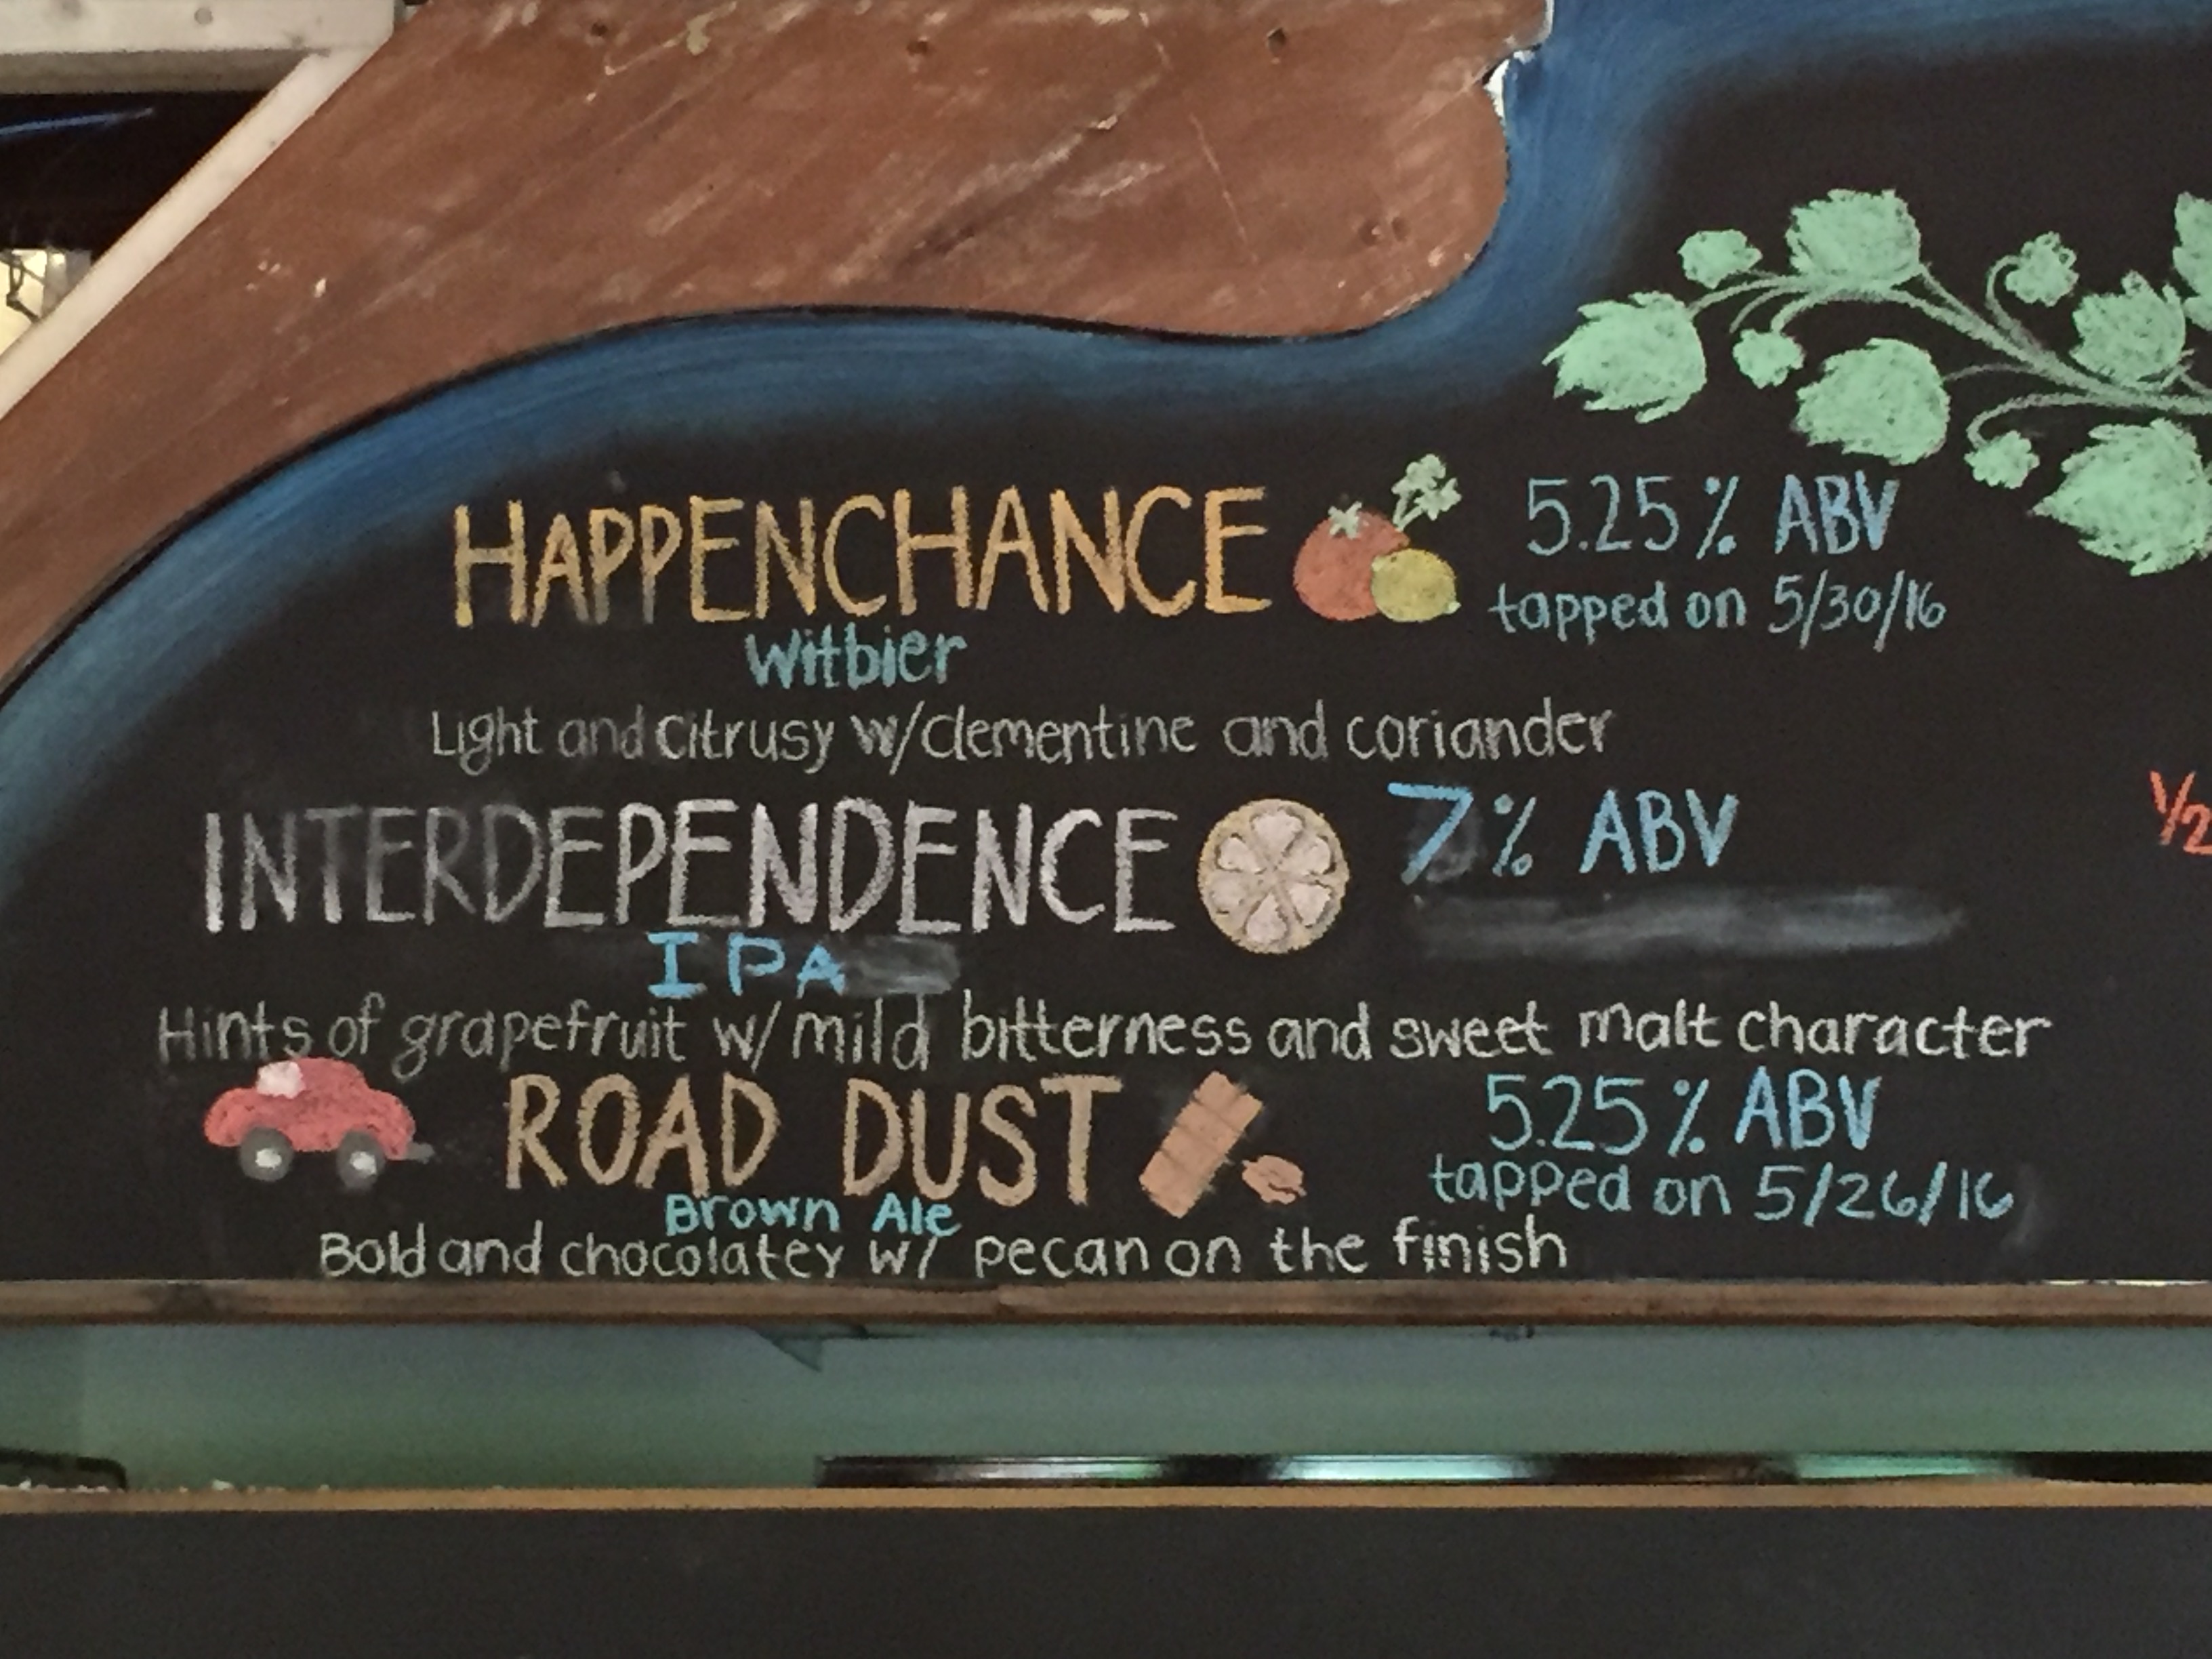 HAPPENCHANCE 5.25% ABV
tapped on 5/30/16
Witbier
Light and citrusy w/clementine and coriander
INTERDEPENDENCE 7% ABV
1/2
IPA
Hints of grapefruit w/ mild bitterness and sweet malt character
ROAD DUST 5.25% ABV
tapped on 5/26/16
Brown Ale
Bold and chocolatey w/ pecan on the finish